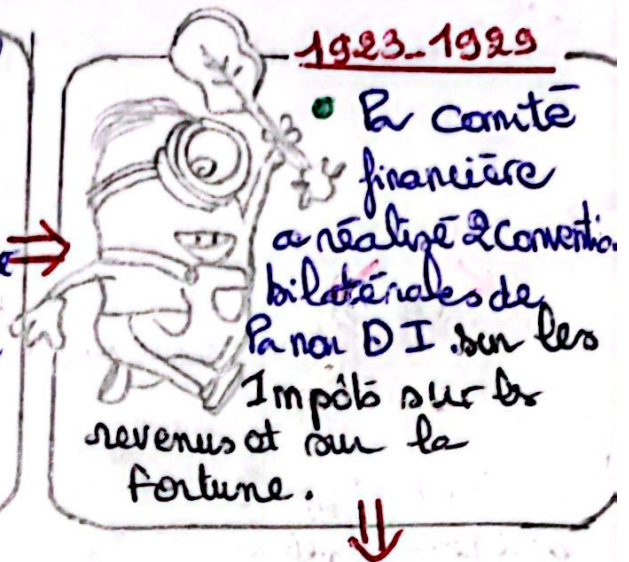 1923-1929
• la comité
financière
a réalisé 2 conventio
bilatérales de
la non D I sur les
Impôts sur les
revenus et sur la
fortune.